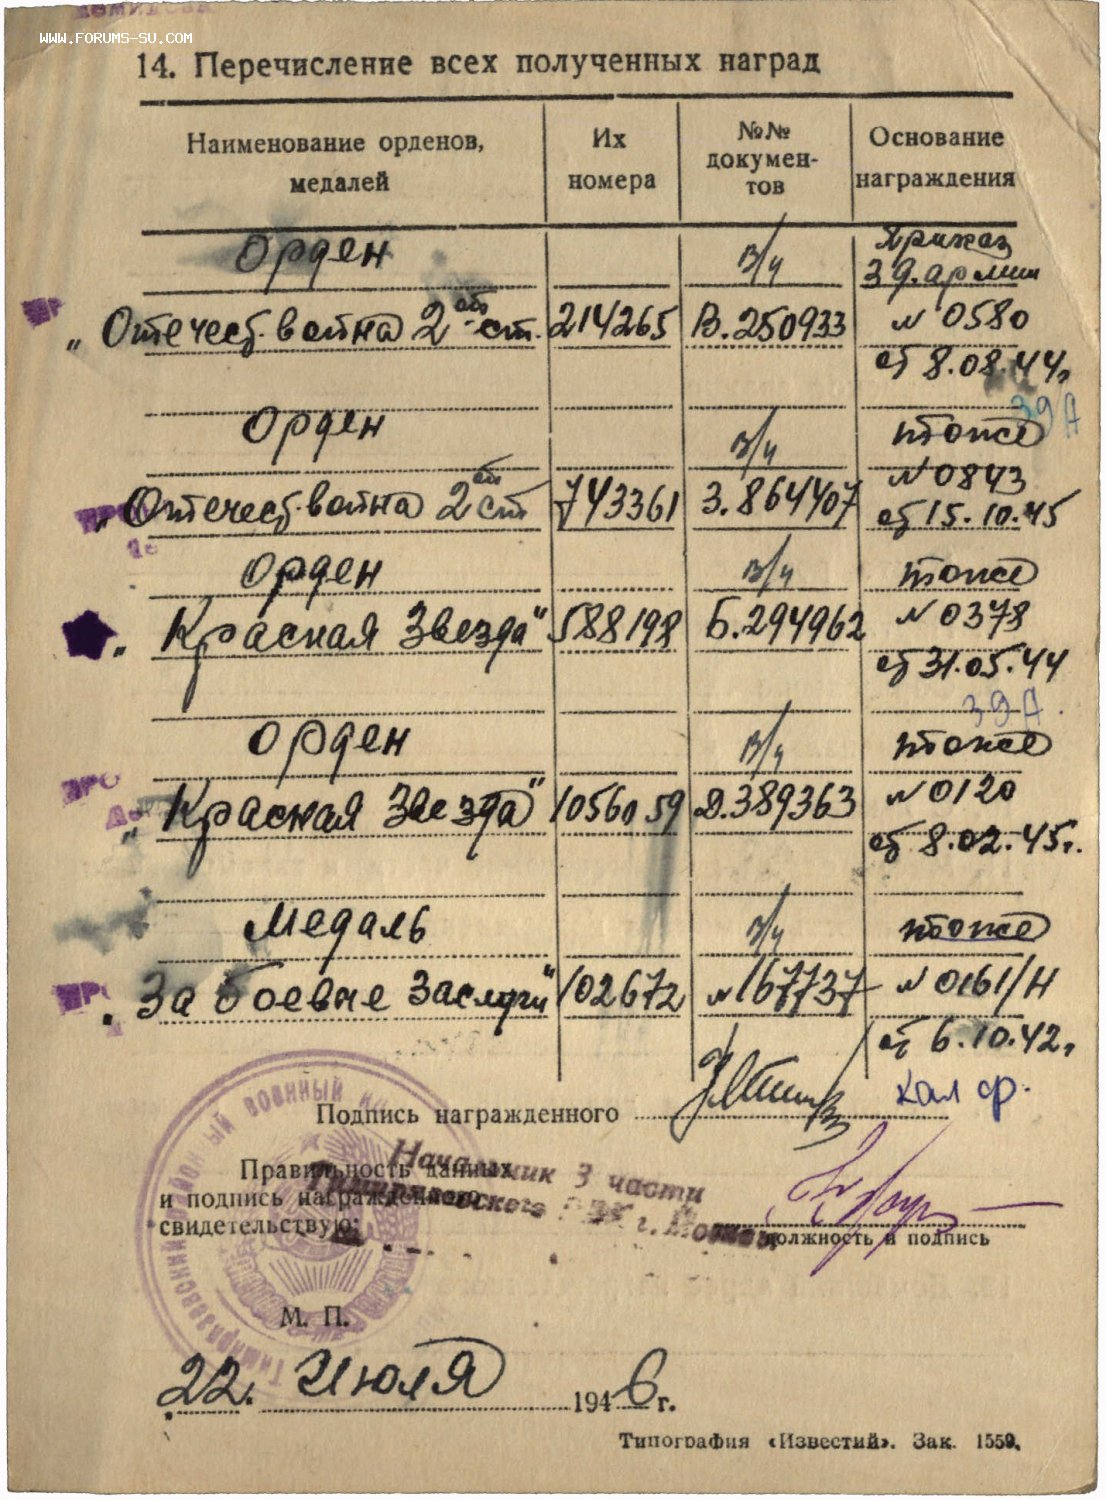 WWW.FORUMS-SU.COM
14. Перечисление всех полученных наград
Наименование орденов, медалей
Их номера
№№ докумен-тов
Основание награждения
Орден в/ч Приказ
39.армии
„Отечест.война 2ой ст. 214265 В.250933 № 0580
от 8.08.44г.
39 А
Орден в/ч тоже
№ 0843
„Отечест.война 2ой ст 743361 З.864407 от 15.10.45
Орден в/ч тоже
„Красная Звезда" 588198 Б.294962 № 0378
от 31.05.44
39 А.
Орден в/ч тоже
„Красная Звезда" 1056059 Д.389363 № 0120
от 8.02.45г.
Медаль в/ч тоже
„За боевые заслуги" 102672 № 167737 № 0161/Н
от 6.10.42г.
Кал ф.
Подпись награжденного
Правильность данных
и подпись награжденного
свидетельствую:
Начальник 3 части
Тимирязевского г. Москвы
должность и подпись
М. П.
22. Июля 1946 г.
Типография «Известий». Зак. 1559.